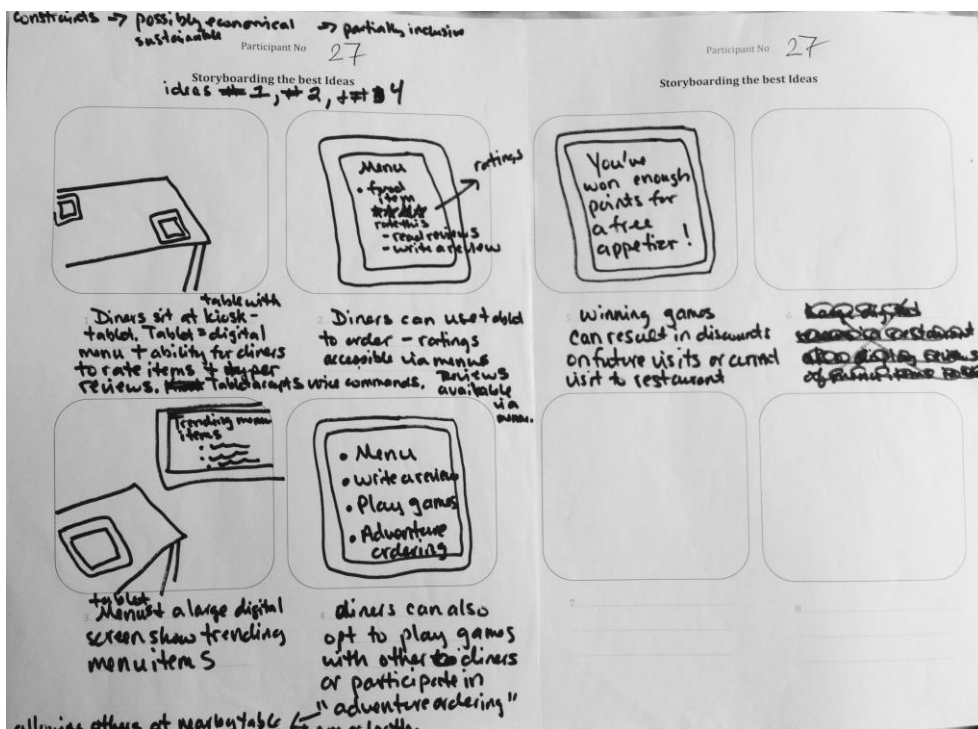 constraints → possibly economical → partially inclusive
sustainable
Participant No 27
Storyboarding the best Ideas
ideas # 1, # 2, # 4
Menu
• food
item
rate this
- read reviews
- write a review
ratings
1 Diners sit at kiosk - table with
tablet. Tablet = digital
menu + ability for diners
to rate items +
reviews. Tablet accepts voice commands.
2 Diners can use tablet
to order - ratings
accessible via menus
Reviews
available
via
Trending menu
items
3 tablet
Menus + a large digital
screen show trending
menu items
• Menu
• Write a review
• Play games
• Adventure
ordering
4 diners can also
opt to play games
with other diners
or participate in
"adventure ordering"
allowing others at nearby table
Participant No 27
Storyboarding the best Ideas
You've
won enough
points for
a free
appetier!
5 winning games
can result in discounts
on future visits or current
visit to restaurant
6
7
8